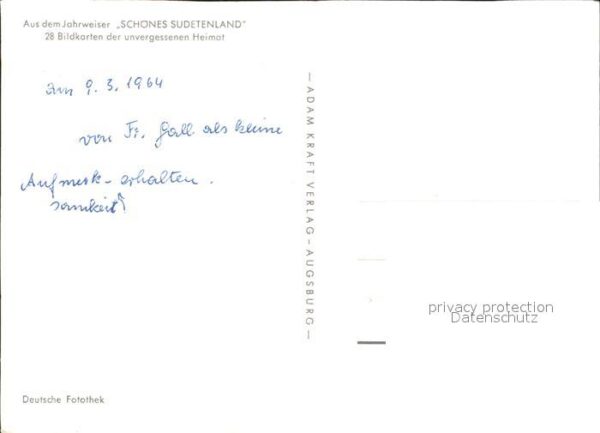 Aus dem Jahrweiser „SCHÖNES SUDETENLAND"
28 Bildkarten der unvergessenen Heimat
am 9. 3. 1964
von Fr. Gall als kleine
Aufmerk- erhalten.
samkeit
— ADAM KRAFT VERLAG – AUGSBURG —
privacy protection
Datenschutz
Deutsche Fotothek